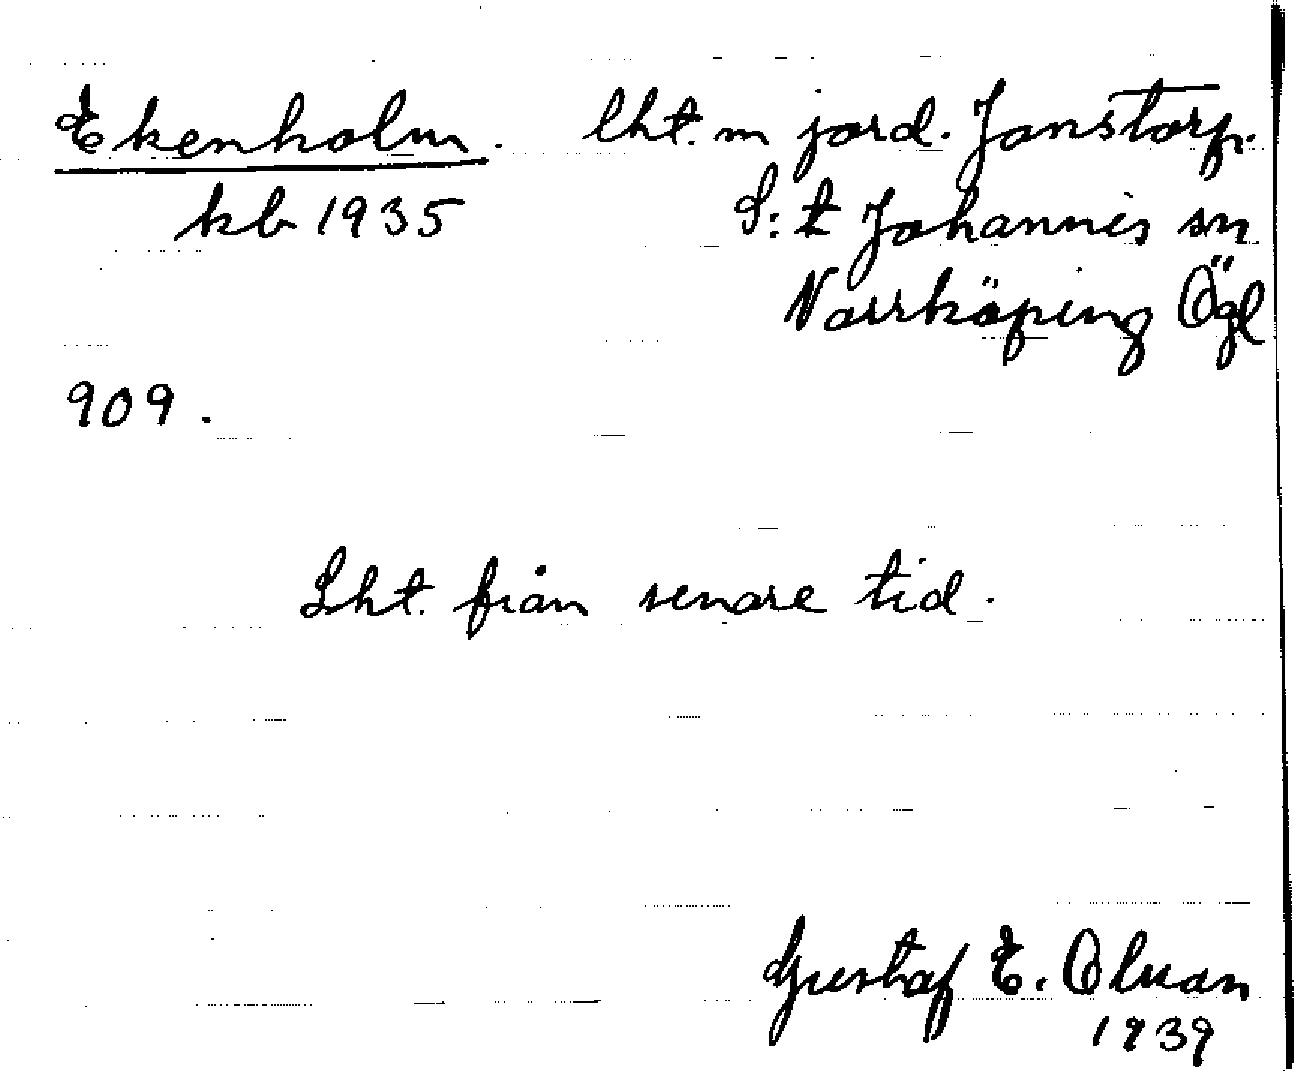 Ekenholm. lht. m jord. Jonstorp.
kb 1935 S:t Johannes sn
Norrköping Ögl
909.
Lht. från senare tid.
Gustaf E. Olsson
1939